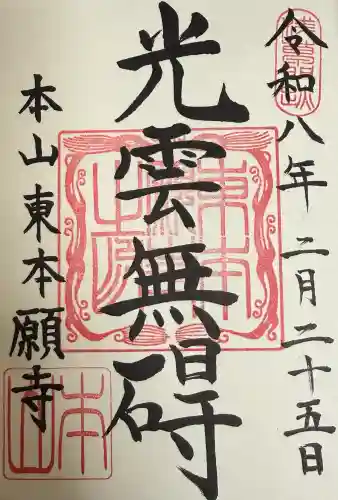 令和八年二月二十五日
光雲無碍
本山東本願寺